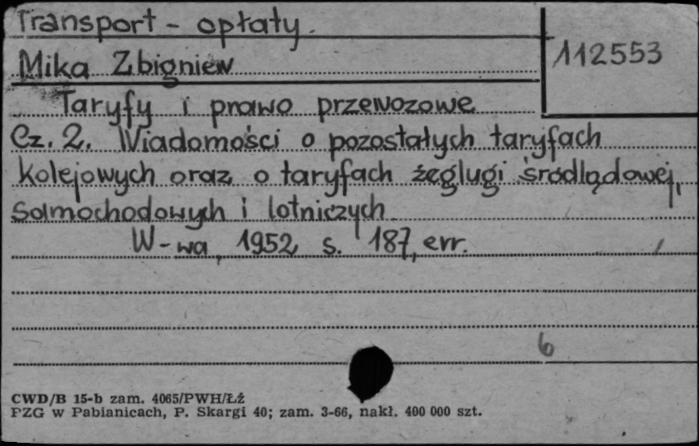 Transport - opłaty.
112553
Mika Zbigniew
Taryfy i prawo przewozowe
Cz. 2. Wiadomości o pozostałych taryfach
kolejowych oraz o taryfach żeglugi śródlądowej,
samochodowych i lotniczych.
W-wa, 1952 s. 187, err.
6
CWD/B 15-b zam. 4065/PWH/Łź
PZG w Pabianicach, P. Skargi 40; zam. 3-66, nakł. 400 000 szt.